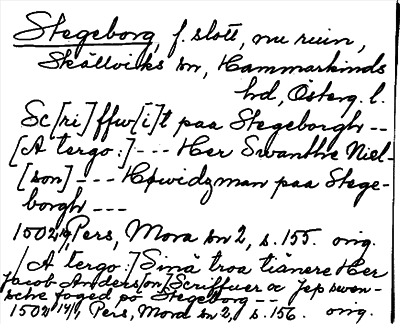 Stegeborg, f. slott, nu ruin,
Skällviks sn, Hammarkinds
hd, Österg. l.
Sc[ri]ffw[i]t paa Stegeborgh --
[A tergo:] --- Her Swanthe Niel-
[son] --- Høwidzman paa Stege-
borgh ---
1502 Pers, Mora sn 2, s. 155. orig.
[A tergo:] Sinä troa tiänere Her
Jacob Anderson Scriffuer oc Jep swen-
sche foged po Stegeborg --
1502 14/4, Pers, Mora sn 2, s. 156. orig.